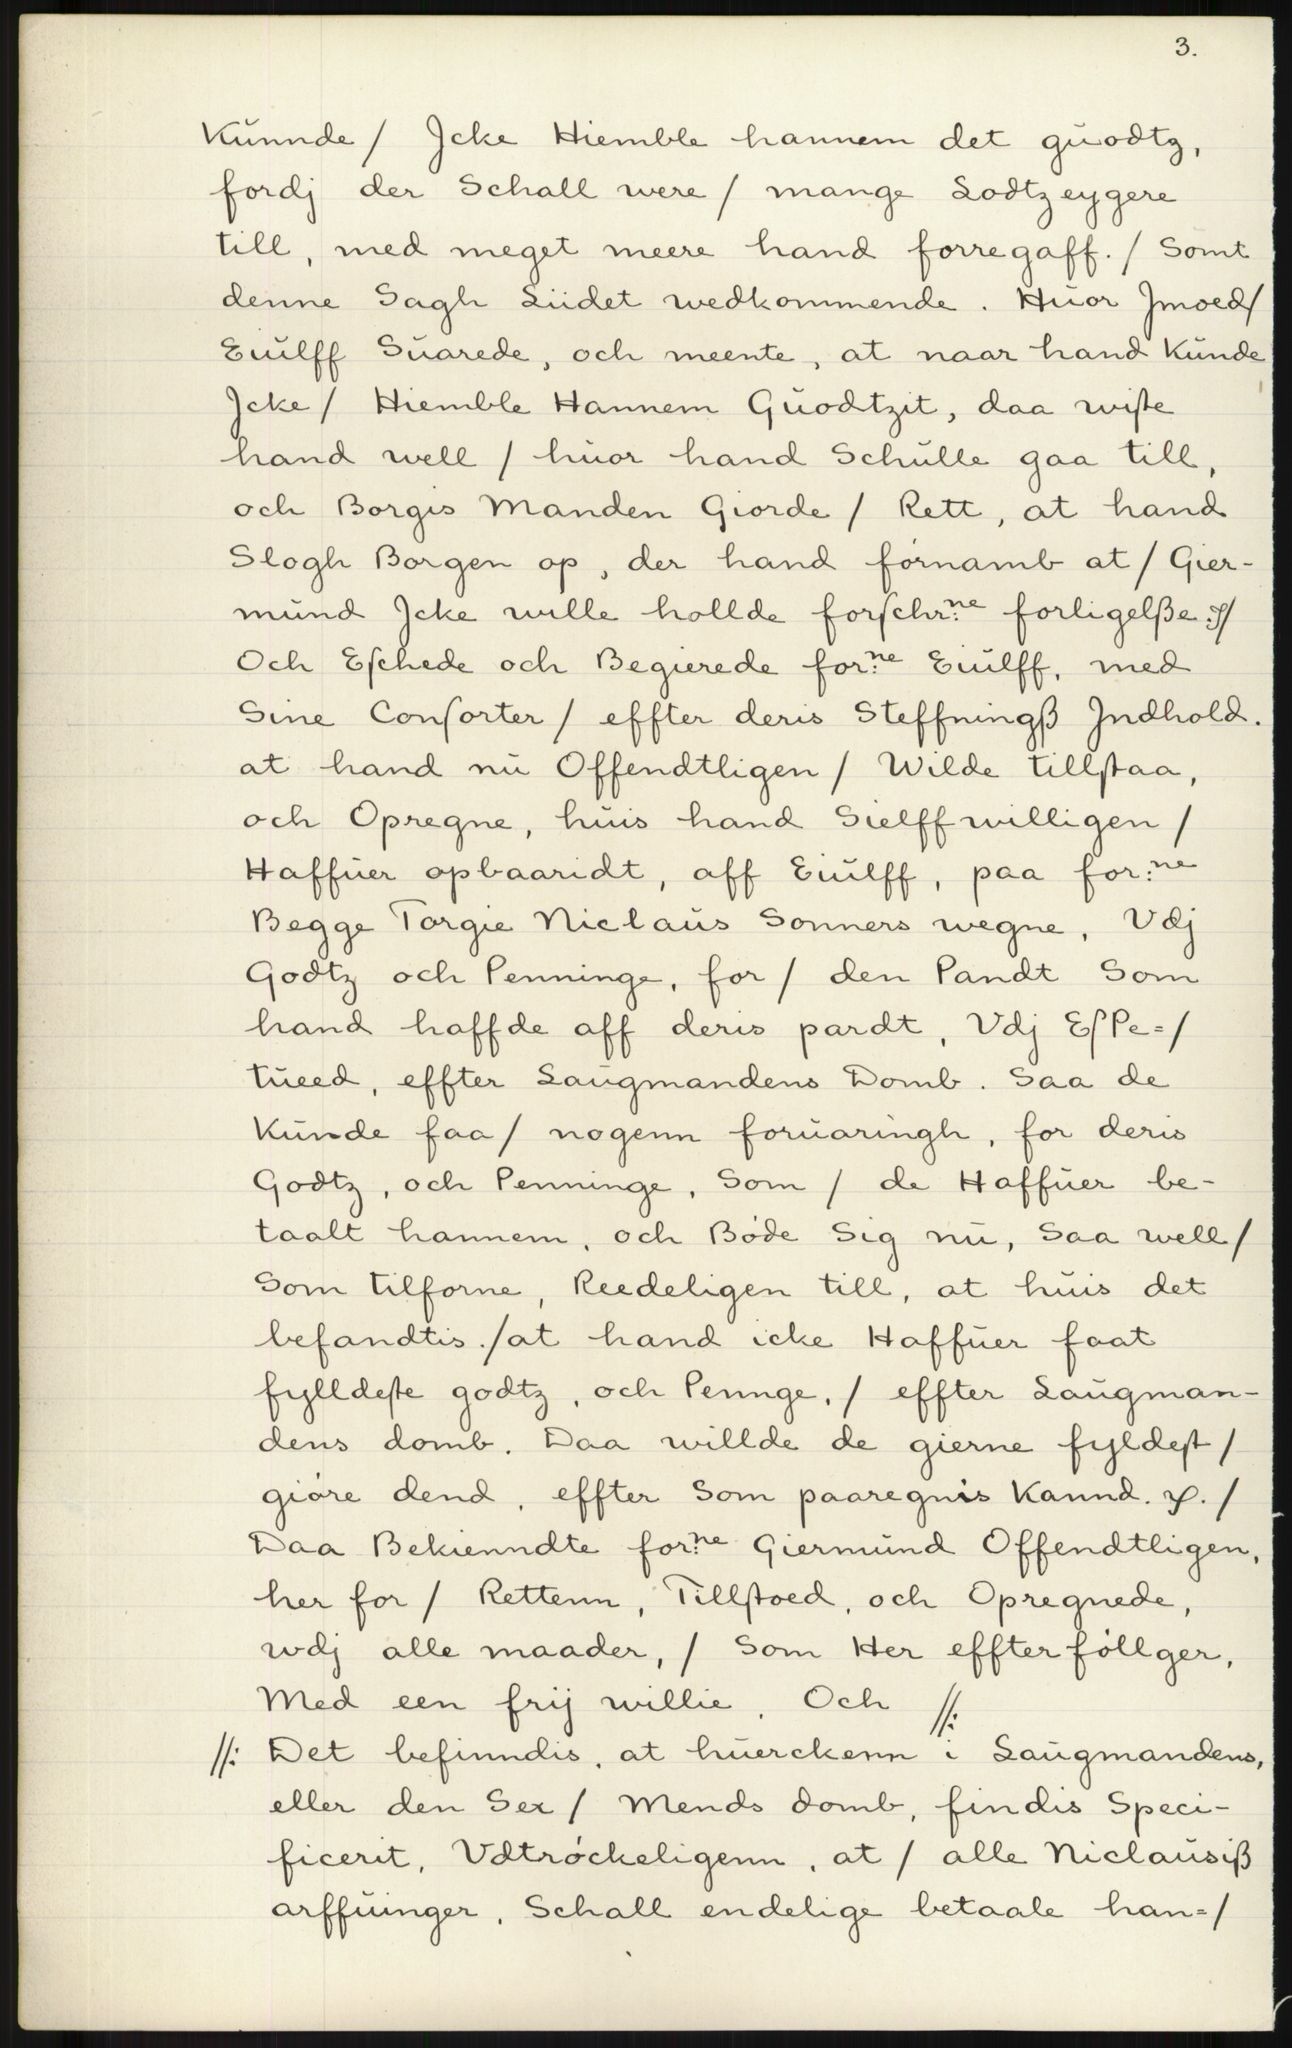 3.
Kŭnnde / Jcke Hiemble hannem det gŭodtz,
fordj der Schall were / mange Lodtzeygere
till, med meget meere hand forregaff. / Somt
denne Sagh Liidet wedkommende. Hŭor Jmoed/
Eiŭlff Sŭarede, och meente, at naar hand Kŭnde
Jcke / Hiemble Hannem Gŭodtzit, daa wiſte
hand well / hŭor hand Schŭlle gaa till,
och Borgis Manden Giorde / Rett, at hand
Slogh Borgen op, der hand fórnamb at / Gier-
mŭnd Jcke wille hollde forſchr:ne forligelße.ꝝ/
Och Eſchede och Begierede for:ne Eiŭlff, med
Sine Conſorter / effter deris Steffningß Jndhold.
at hand nŭ Offendtligen / Wilde tillſtaa,
och Opregne, hŭis hand Sielffwilligen /
Haffŭer opbaaridt, aff Eiŭlff, paa for:ne
Begge Torgie Niclaŭs Sonners wegne, Vdj
Godtz och Penninge, for / den Pandt Som
hand haffde aff deris pardt, Vdj Eſpe=/
tŭeed, effter Laŭgmandens Domb. Saa de
Kŭnde faa / nogenn forŭaringh, for deris
Godtz, och Penninge, Som / de Haffŭer be-
taalt hannem, och Bóde Sig nŭ, Saa well /
Som tilforne, Reedeligen till, at hŭis det
befandtis. / at hand icke Haffŭer faat
fylldeſte godtz, och Pennge, / effter Laŭgman-
dens domb. Daa willde de gierne fyldeſt /
gióre dend, effter Som paaregnis Kannd. ꝝ. /
Daa Bekienndte for:ne Giermŭnd Offendtligen,
her for / Rettenn, Tillſtoed, och Opregnede,
wdj alle maader, / Som Her effterfóllger,
Med een frij willie. Och //:
//: Det befinndis, at hŭerckenn i Laŭgmandens,
eller den Sex / Mends domb, findis Speci-
ficerit, Vdtróckeligenn, at / alle Niclaŭsiß
arffŭinger, Schall endelige betaale han=/